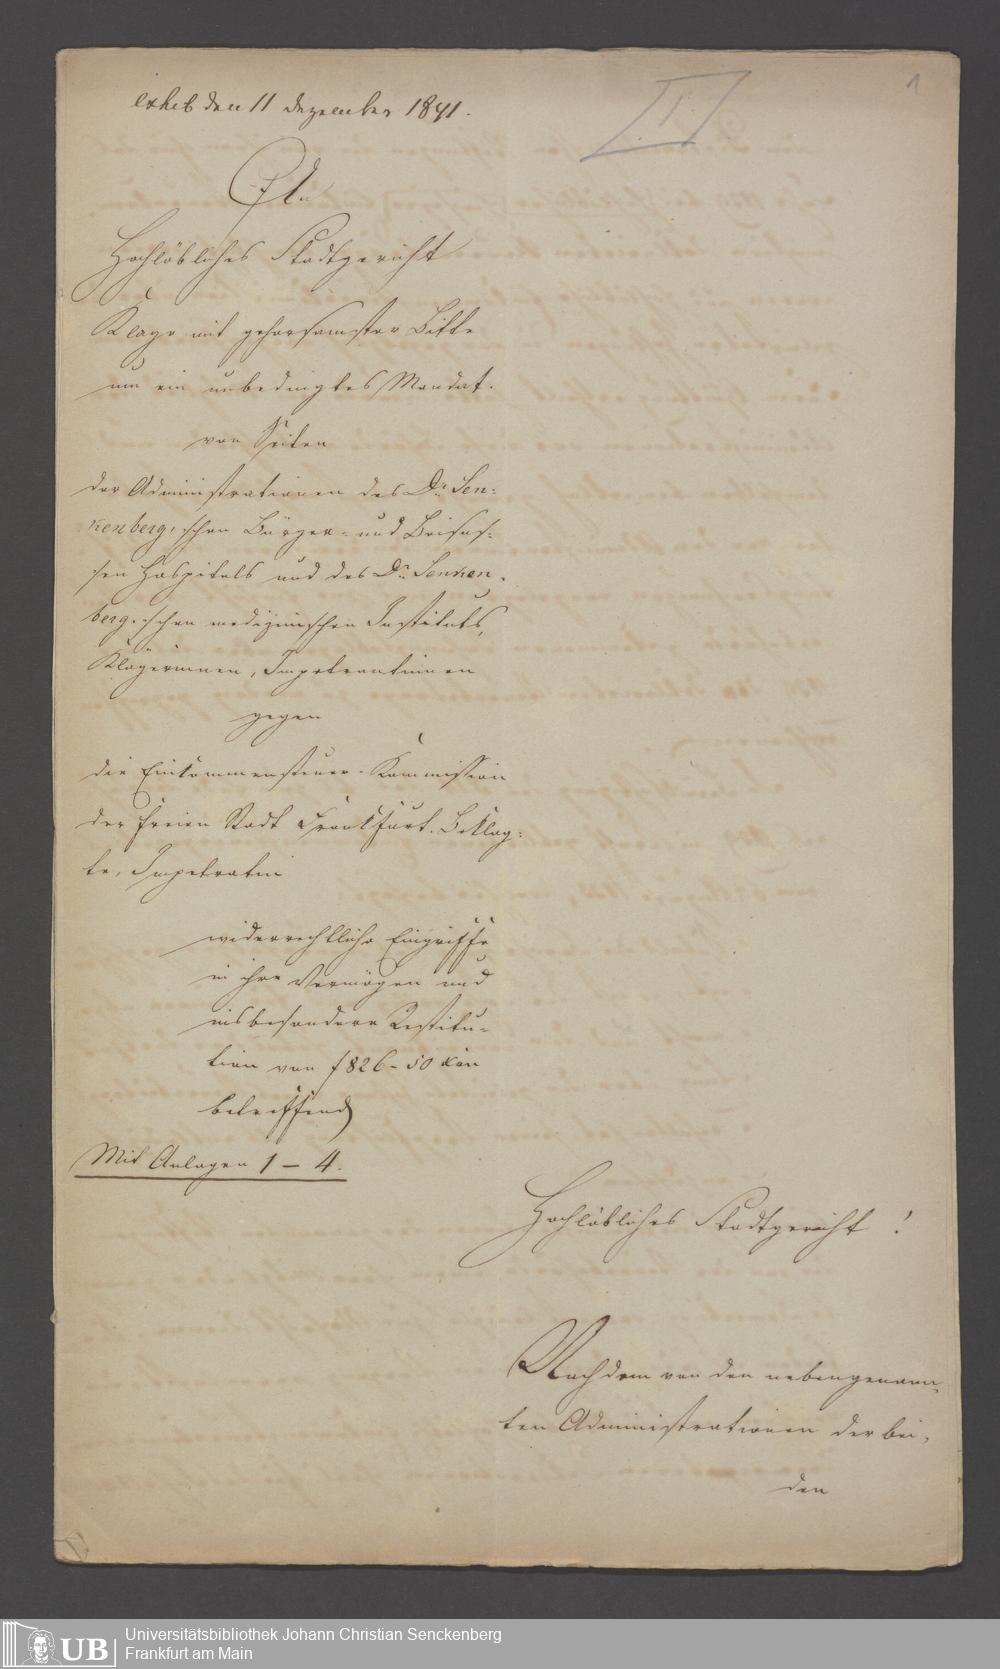 exhib den 11 Dezember 1841.
I.
1
An
Hochlöbliches Stadtgericht
Klage mit gehorsamster Bitte
um ein unbedingtes Mandat.
von Seiten
der Administrationen des Dr. Sen-
kenberg'schen Bürger- und Beisas-
sen Hospitals und des Dr. Senken-
berg'schen medizinischen Instituts,
Klägerinnen, Impetrantinnen
gegen
die Einkommensteuer-Kommission
der freien Stadt Frankfurt. Beklag-
te, Impetratin
widerrechtliche Eingriffe
in ihre Vermögen und
insbesondere Restitu-
tion von f 826 - 50 xrn
betreffend
Mit Anlagen 1 – 4.
Hochlöbliches Stadtgericht!
Nachdem von den nebengenann-
ten Administrationen der bei-
den
UB
Universitätsbibliothek Johann Christian Senckenberg
Frankfurt am Main